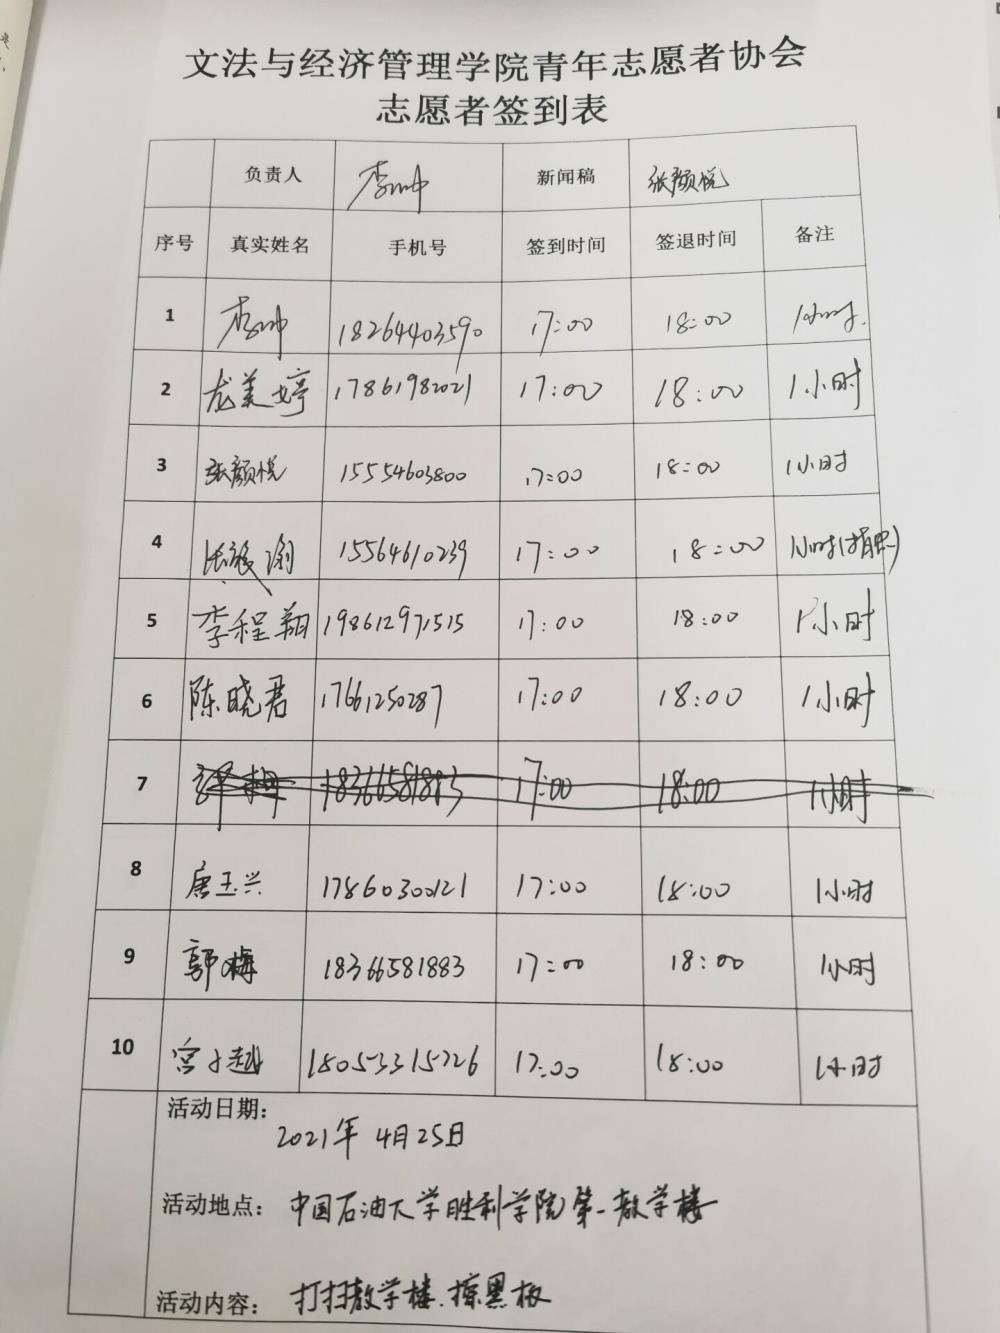 文法与经济管理学院青年志愿者协会
志愿者签到表
负责人 李坤 新闻稿 张颜悦
序号 真实姓名 手机号 签到时间 签退时间 备注
1 李坤 18264403590 17:00 18:00 1小时.
2 龙美婷 17861982021 17:00 18:00 1小时
3 张颜悦 15554603800 17:00 18:00 1小时
4 15564610239 17:00 18:00 1小时
5 李程翔 198612971515 17:00 18:00 1小时
6 陈晓君 17661250287 17:00 18:00 1小时
7 17:00 18:00 1小时
8 唐玉兴 17860300121 17:00 18:00 1小时
9 郭梅 18366581883 17:00 18:00 1小时
10 宫子越 18053315726 17:00 18:00 1小时
活动日期:
2021年 4月25日
活动地点: 中国石油大学胜利学院第一教学楼
活动内容: 打扫教学楼.擦黑板